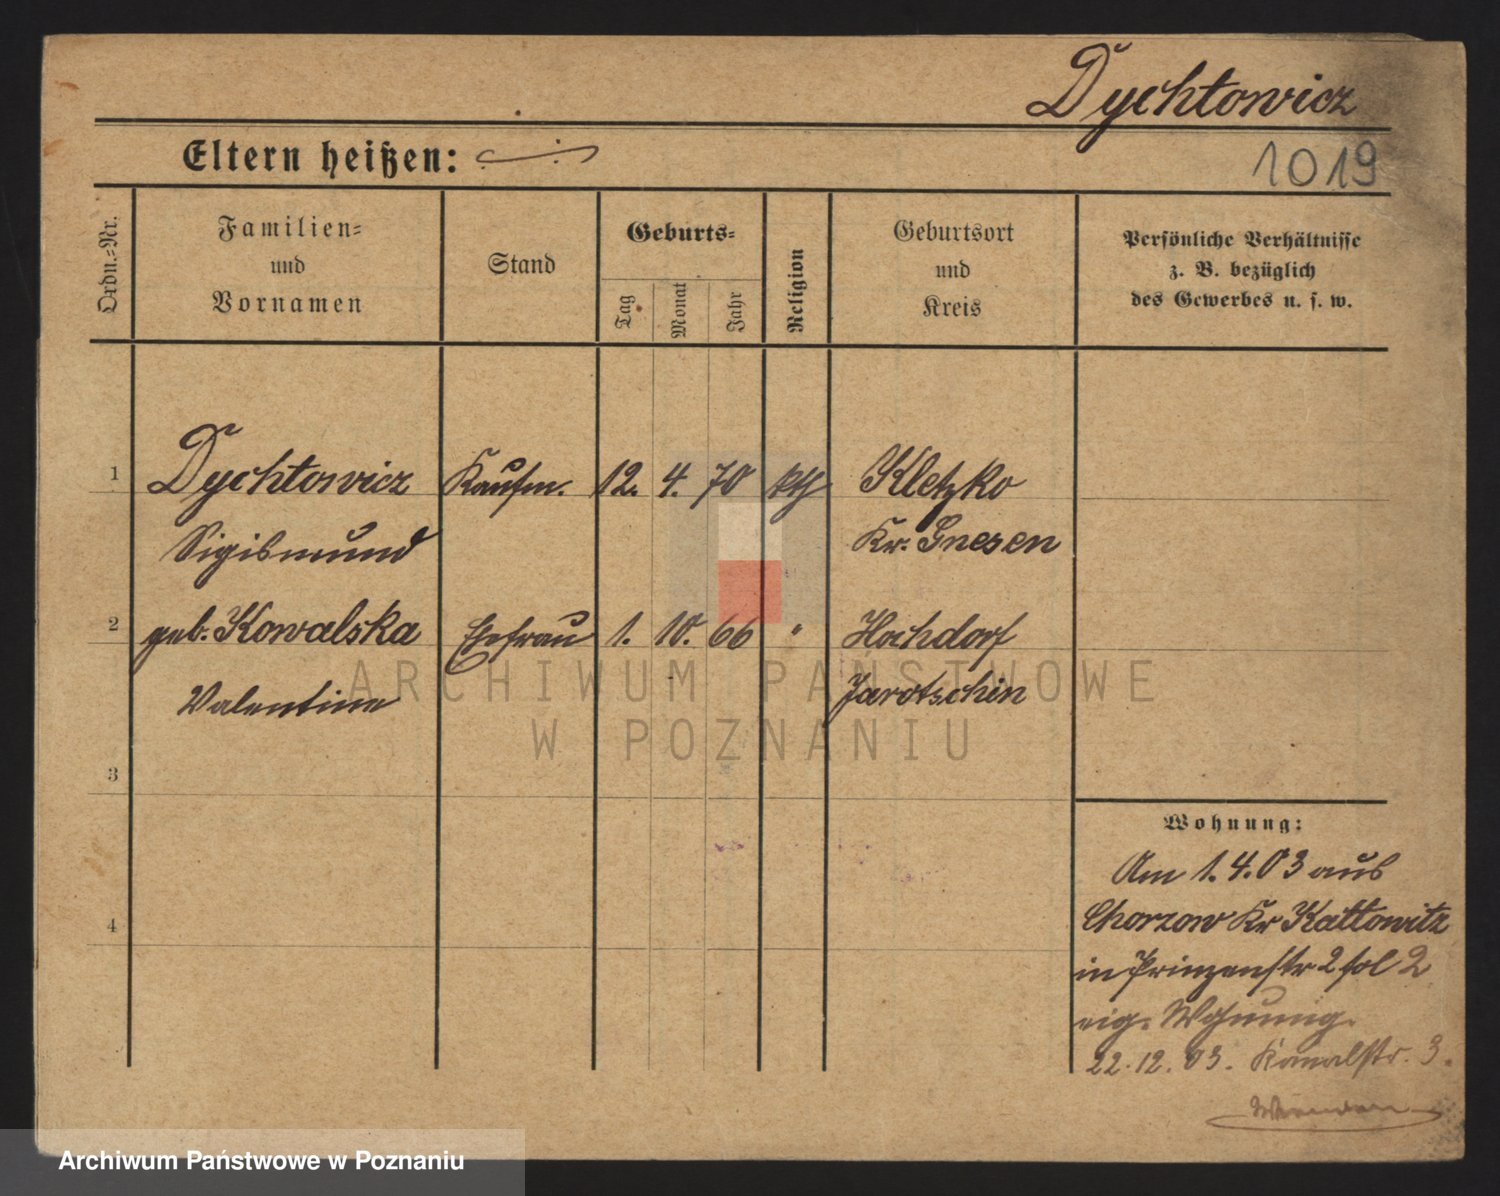 Dychtowicz
1019
Eltern heißen:
Ordn.-Nr.
Familien-
und
Vornamen
Stand
Geburts-
Tag
Monat
Jahr
Religion
Geburtsort
und
Kreis
Persönliche Verhältnisse
z. B. bezüglich
des Gewerbes u. s. w.
1 Dychtowicz Kaufm. 12. 4. 70 kth Kletzko
Sigismund Kr. Gnesen
2 geb. Kowalska Ehefrau 1. 10. 66 " Hochdorf
Valentine Jarotschin
3
4
Wohnung:
Am 1.4.03 aus
Chorzow Kr Kattowitz
in Prinzenstr 2 fol 2
eig. Wohnung.
22.12.03. Kanalstr. 3.
ARCHIWUM PAŃSTWOWE
W POZNANIU
Archiwum Państwowe w Poznaniu